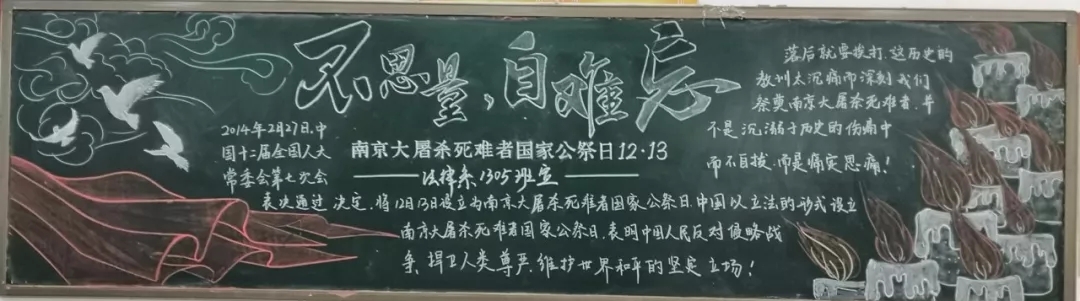 不思量，自难忘
南京大屠杀死难者国家公祭日12·13
法律系1305班宣
2014年2月27日，中
国十二届全国人大
常委会第七次会
表决通过 决定，将12月13日设立为南京大屠杀死难者国家公祭日，中国以立法的形式设立
南京大屠杀死难者国家公祭日，表明中国人民反对侵略战
争，捍卫人类尊严，维护世界和平的坚定立场！
落后就要挨打，这历史的
教训太沉痛而深刻，我们
祭奠南京大屠杀死难者，并
不是沉溺于历史的伤痛中
而不自拔，而是痛定思痛！